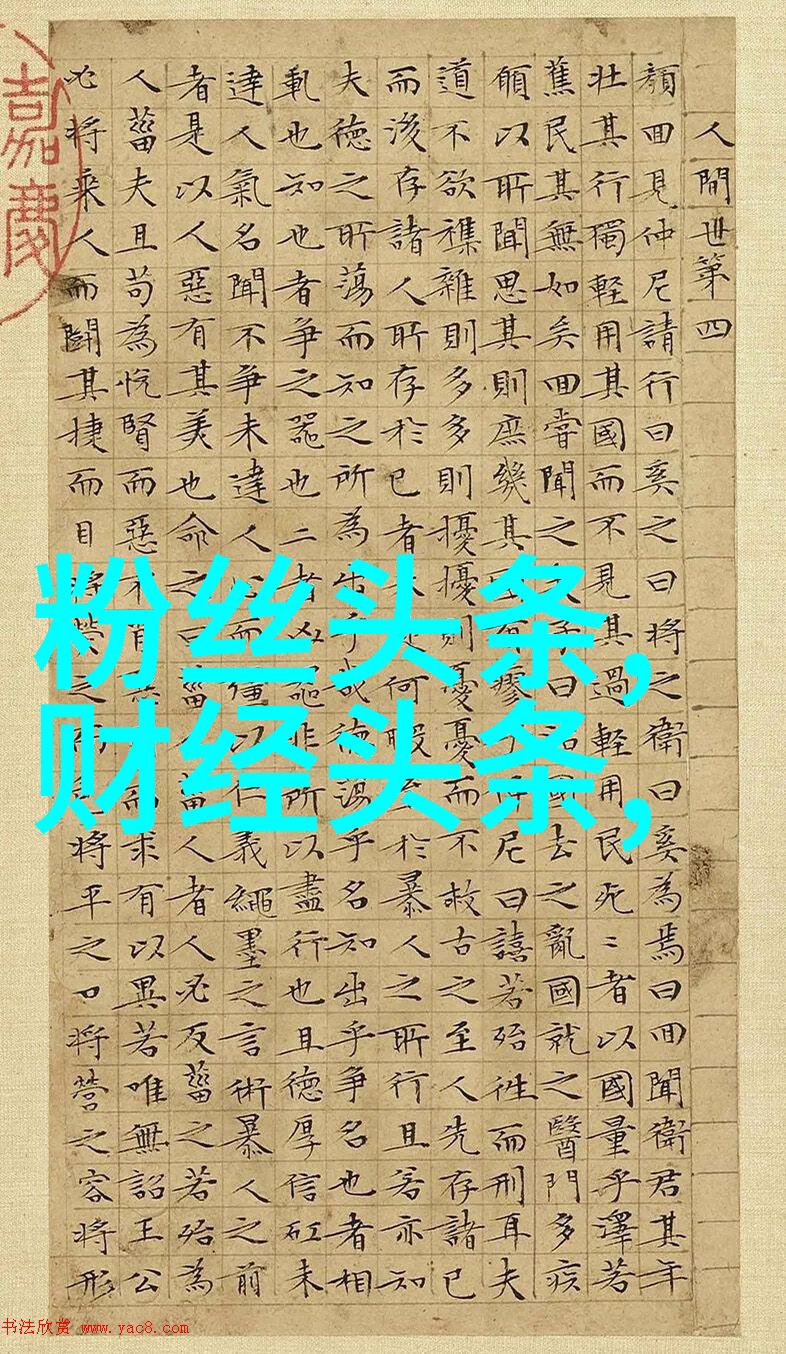 人間世第四
顏回見仲尼請行曰奚之曰將之衛曰奚為焉曰回聞衛君其年
壯其行獨輕用其國而不見其過輕用民死〻者以國量乎澤若
蕉民其無如矣回嘗聞之夫子曰治國去之亂國就之醫門多疾
願以所聞思其則庶幾其有瘳仲尼曰譆若殆往而刑耳夫
道不欲襍雜則多多則擾擾則憂憂而不救古之至人先存諸已
而後存諸人所存於已者未何暇於暴人之所行且若亦知
夫德之所蕩而知之所為出乎哉德蕩乎名知出乎爭名也者相
軋也知也者爭之器也二者凶器非所以盡行也且德厚信矼未
達人氣名聞不爭未達人心而彊以仁義繩墨之言術暴人之前
者是以人惡有其美也命之曰菑人菑人者人必反菑之若殆為
人菑夫且苟為悅賢而惡不肖而求有以異若唯無詔王公
必將乘人而鬭其捷而目將熒之而將平之口將營之容將形
嘉慶
粉丝头条,
财经头条,
书法欣赏 www.yac8.com